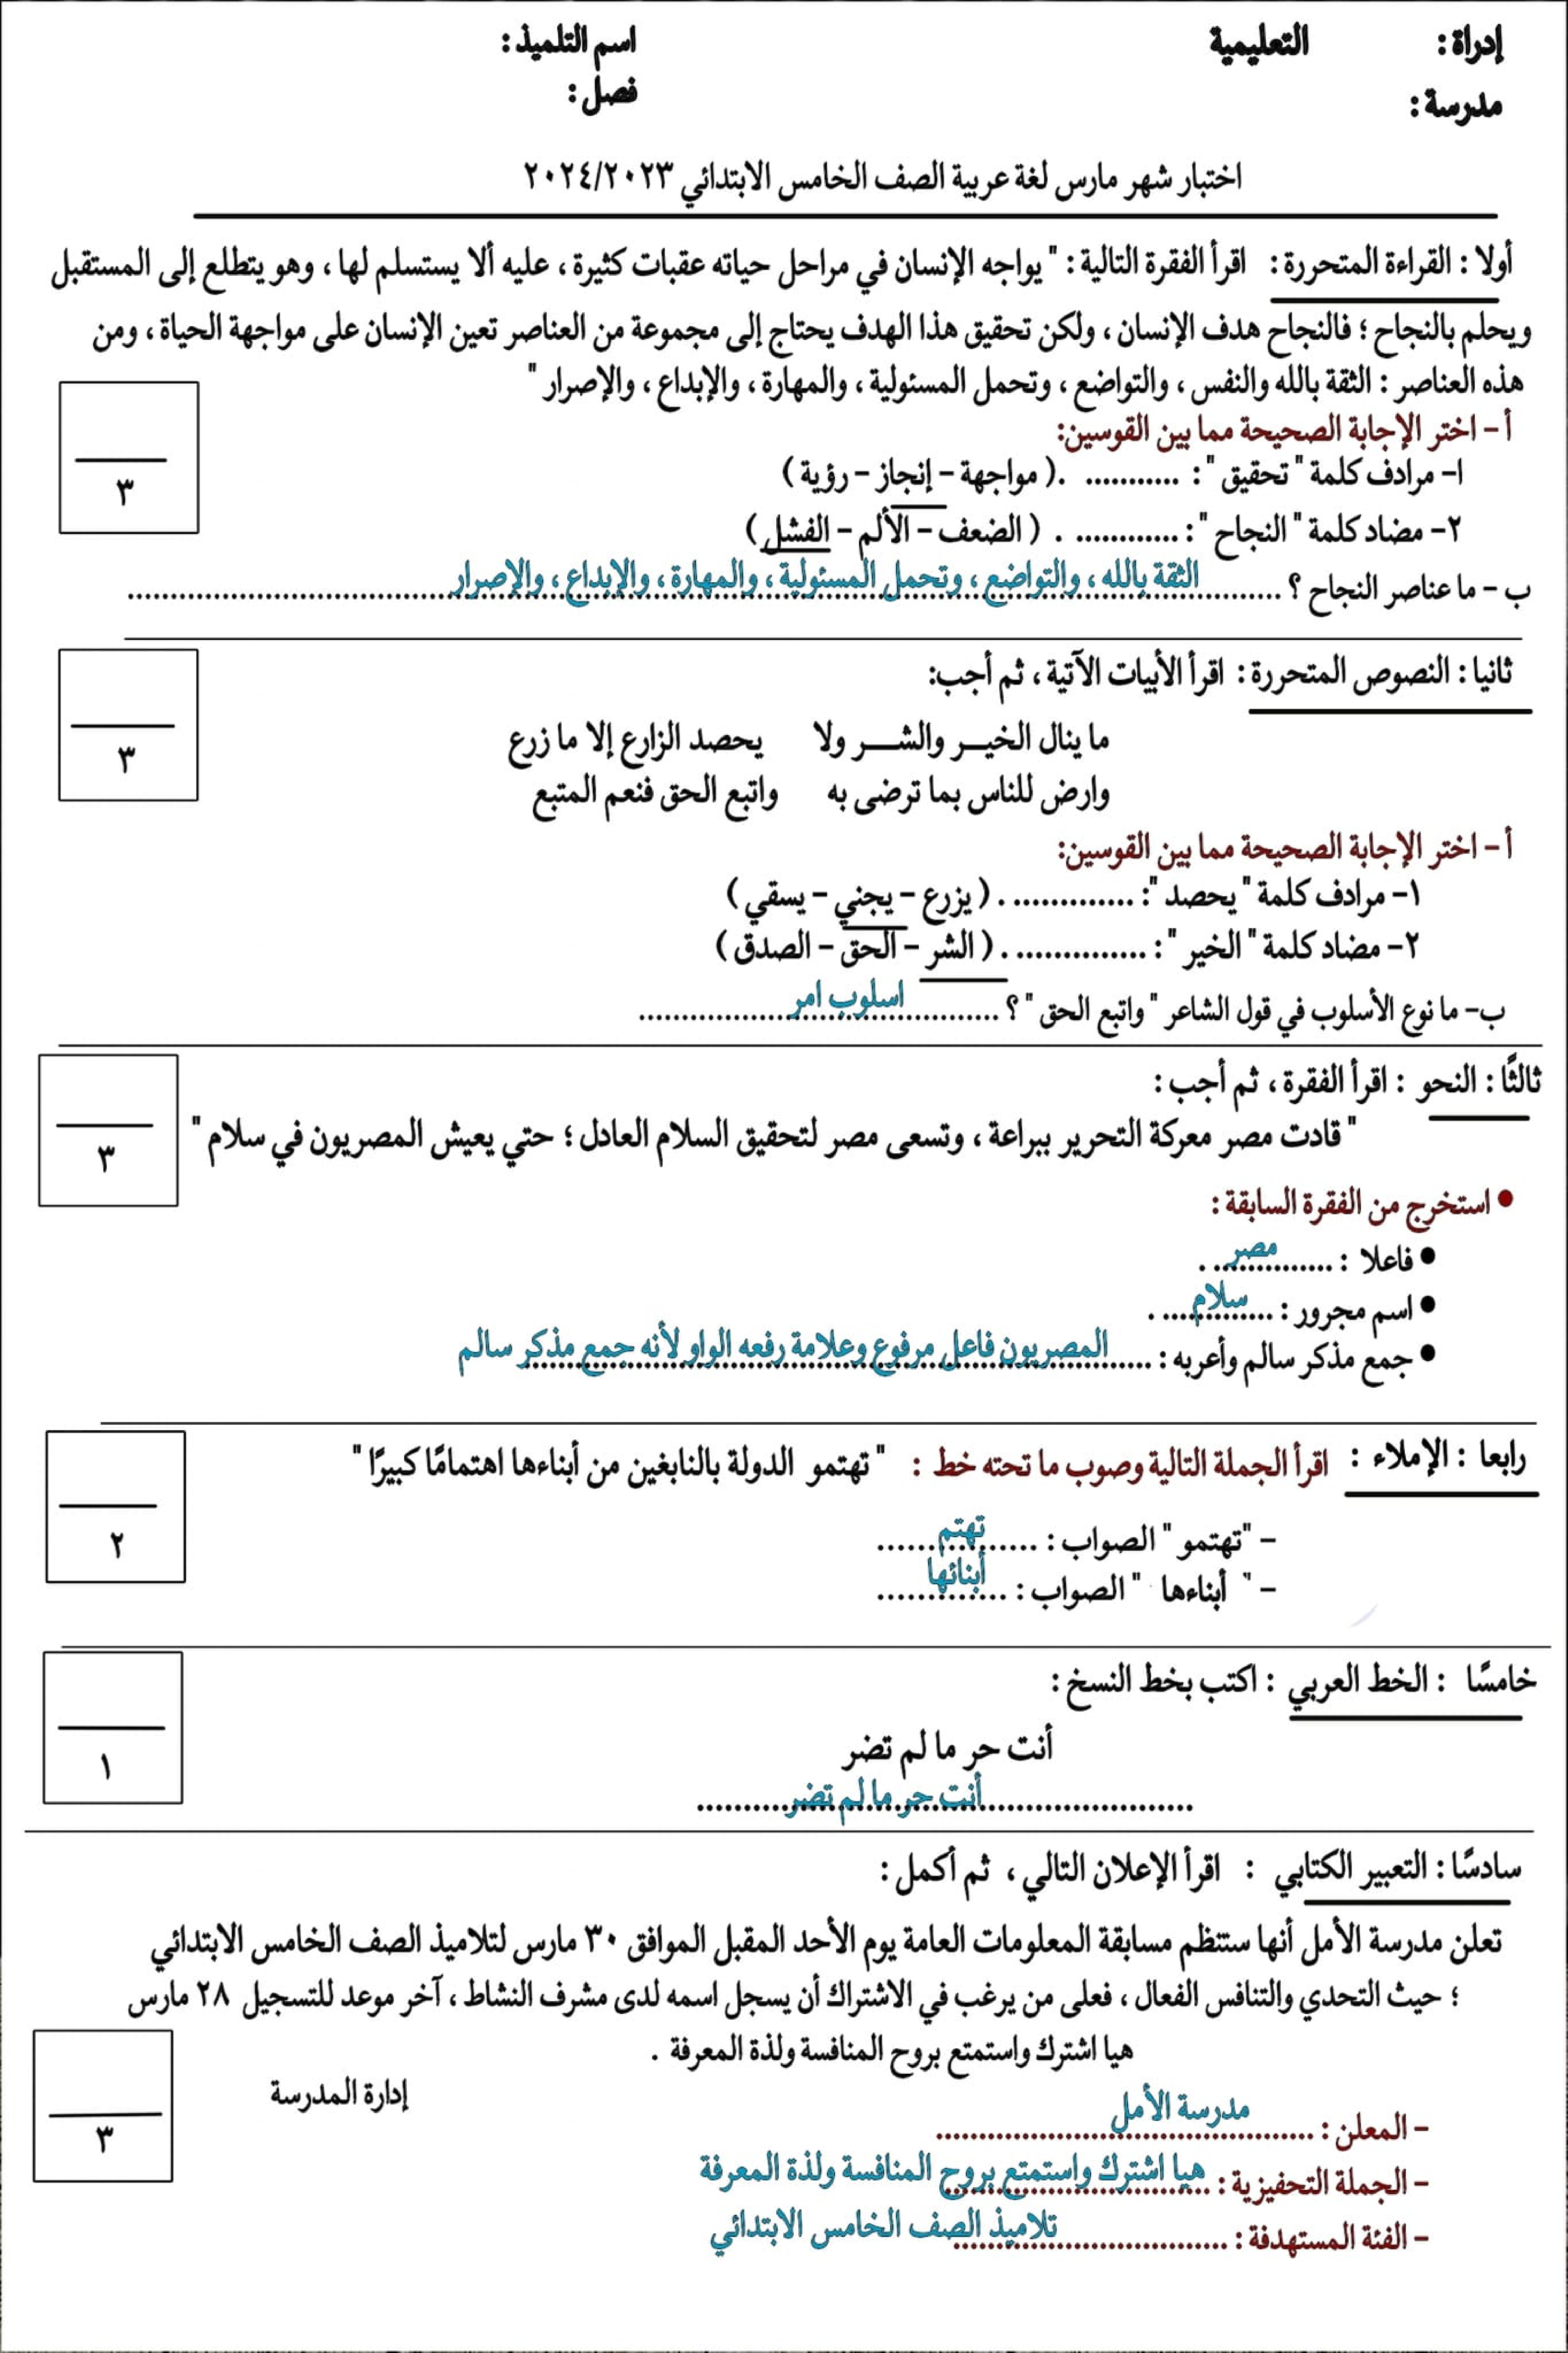 إدراة : التعليمية اسم التلميذ :
مدرسة : فصل :
اختبار شهر مارس لغة عربية الصف الخامس الابتدائي ٢٠٢٤/٢٠٢٣
أولا : القراءة المتحررة : اقرأ الفقرة التالية : " يواجه الإنسان في مراحل حياته عقبات كثيرة ، عليه ألا يستسلم لها ، وهو يتطلع إلى المستقبل
ويحلم بالنجاح ؛ فالنجاح هدف الإنسان ، ولكن تحقيق هذا الهدف يحتاج إلى مجموعة من العناصر تعين الإنسان على مواجهة الحياة ، ومن
هذه العناصر : الثقة بالله والنفس ، والتواضع ، وتحمل المسئولية ، والمهارة ، والإبداع ، والإصرار "
أ – اختر الإجابة الصحيحة مما بين القوسين:
١– مرادف كلمة " تحقيق " : ........... . ( مواجهة – إنجاز – رؤية )
٢– مضاد كلمة " النجاح " : ............ . ( الضعف – الألم – الفشل )
٣
ب – ما عناصر النجاح ؟ الثقة بالله ، والتواضع ، وتحمل المسئولية ، والمهارة ، والإبداع ، والإصرار
ثانيا : النصوص المتحررة : اقرأ الأبيات الآتية ، ثم أجب:
ما ينال الخيــر والشـــر ولا يحصد الزارع إلا ما زرع
٣
وارض للناس بما ترضى به واتبع الحق فنعم المتبع
أ – اختر الإجابة الصحيحة مما بين القوسين:
١– مرادف كلمة " يحصد ": .............. . ( يزرع – يجني – يسقي )
٢– مضاد كلمة " الخير " : ............... . ( الشر – الحق – الصدق )
ب– ما نوع الأسلوب في قول الشاعر " واتبع الحق " ؟ اسلوب امر
ثالثًا : النحو : اقرأ الفقرة ، ثم أجب :
" قادت مصر معركة التحرير ببراعة ، وتسعى مصر لتحقيق السلام العادل ؛ حتي يعيش المصريون في سلام "
٣
• استخرج من الفقرة السابقة :
• فاعلا : مصر .
• اسم مجرور : سلام .
• جمع مذكر سالم وأعربه : المصريون فاعل مرفوع وعلامة رفعه الواو لأنه جمع مذكر سالم
رابعا : الإملاء : اقرأ الجملة التالية وصوب ما تحته خط : " تهتمو الدولة بالنابغين من أبناءها اهتمامًا كبيرًا "
– "تهتمو " الصواب : تهتم
٢
– " أبناءها " الصواب : أبنائها
خامسًا : الخط العربي : اكتب بخط النسخ :
أنت حر ما لم تضر
١
أنت حر ما لم تضر
سادسًا : التعبير الكتابي : اقرأ الإعلان التالي ، ثم أكمل :
تعلن مدرسة الأمل أنها ستنظم مسابقة المعلومات العامة يوم الأحد المقبل الموافق ٣٠ مارس لتلاميذ الصف الخامس الابتدائي
؛ حيث التحدي والتنافس الفعال ، فعلى من يرغب في الاشتراك أن يسجل اسمه لدى مشرف النشاط ، آخر موعد للتسجيل ٢٨ مارس
هيا اشترك واستمتع بروح المنافسة ولذة المعرفة .
إدارة المدرسة
– المعلن : مدرسة الأمل
٣
– الجملة التحفيزية : هيا اشترك واستمتع بروح المنافسة ولذة المعرفة
– الفئة المستهدفة : تلاميذ الصف الخامس الابتدائي